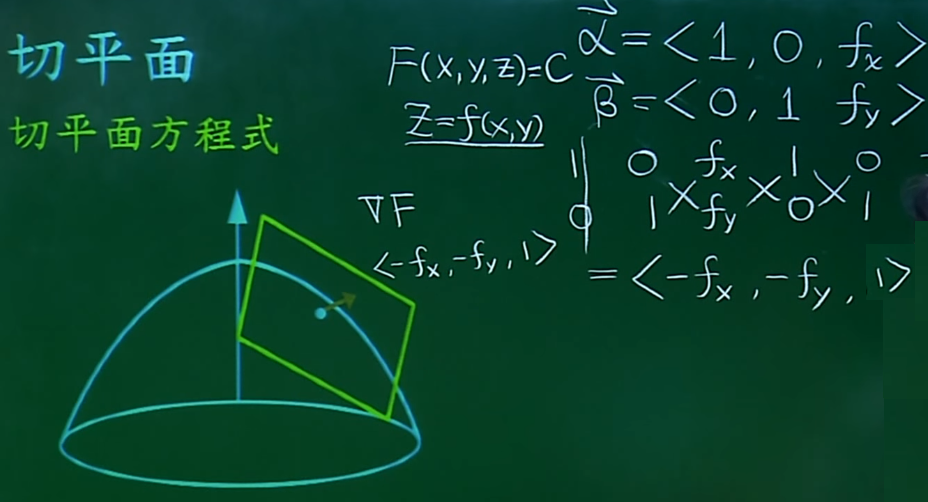 切平面
切平面方程式
F(x,y,z)=C
z=f(x,y)
∇F
<-fx,-fy,1>
α⃗=<1, 0, fx>
β⃗=<0, 1 fy>
1 0 fx 1 0
0 1 fy 0 1
=<-fx,-fy,1>